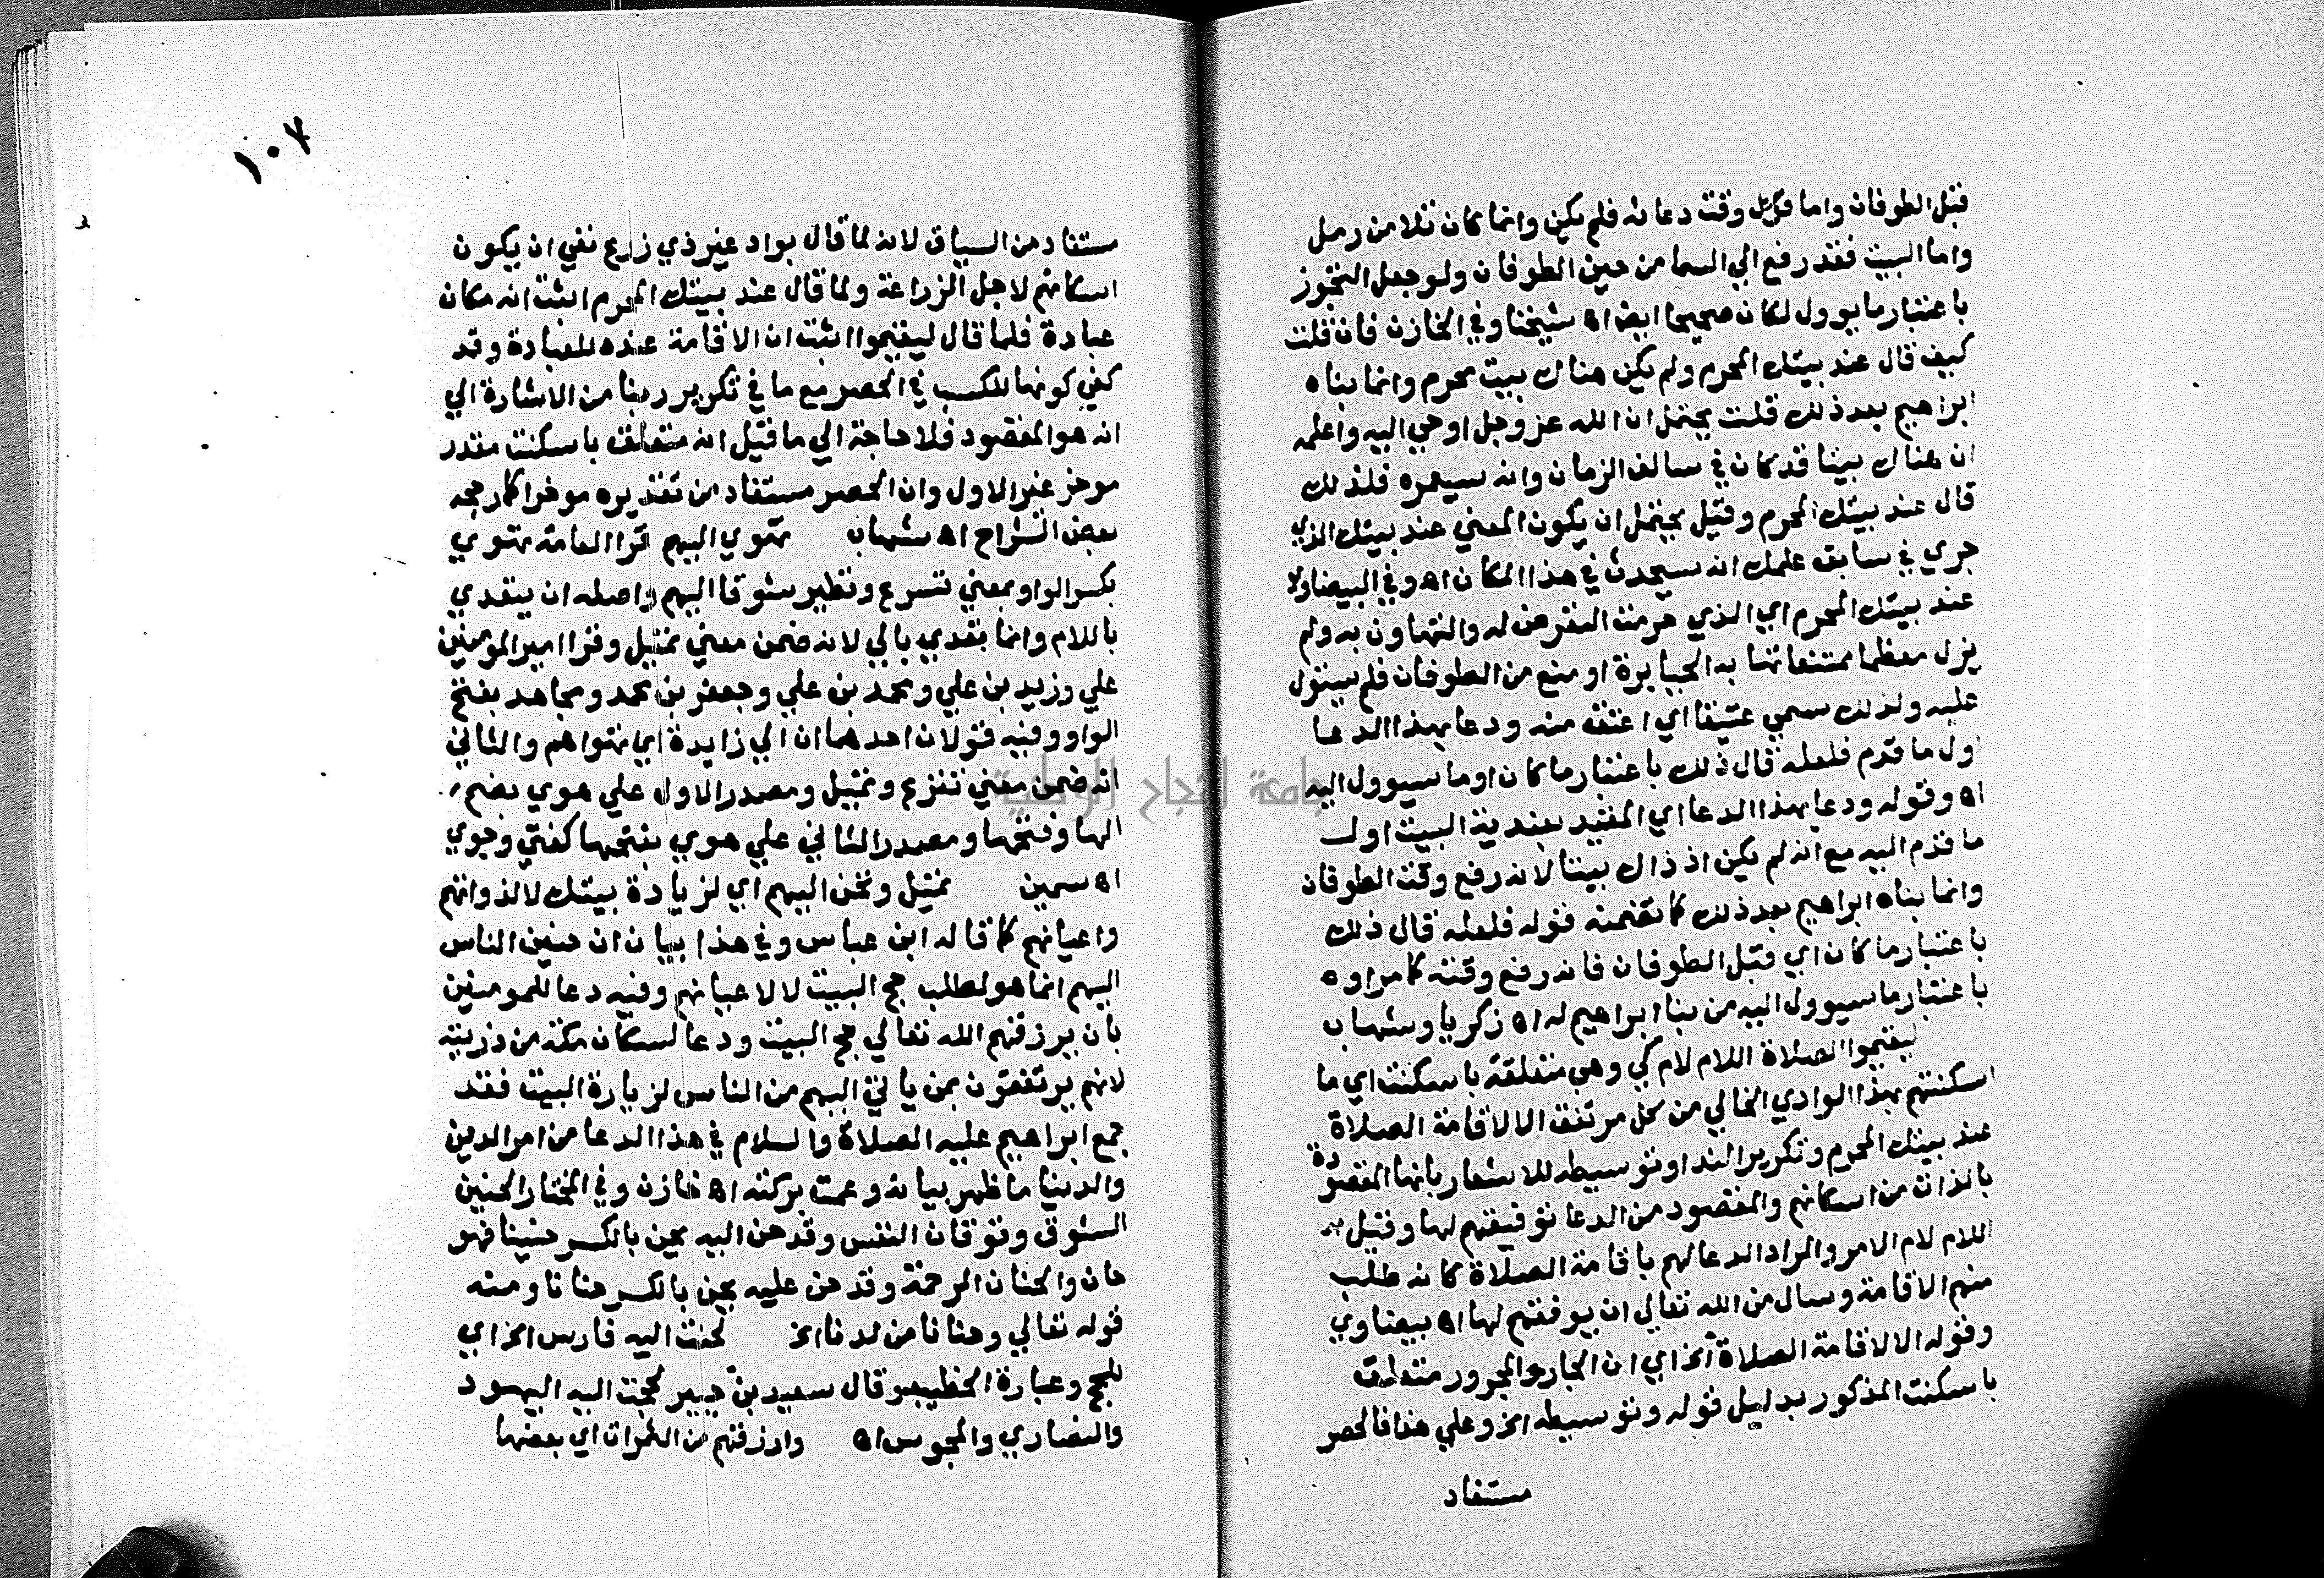 قبل الطوفان واما قبل وقت دعائه فلم يكن وانما كان تلا من رمل
واما البيت فقد رفع الي السما من حين الطوفان ولو جعل التجوز
باعتبار ما يوول لكان صحيحا ايضا اه شيخنا وفي الخازن فان قلت
كيف قال عند بيتك المحرم ولم يكن هناك بيت محرم وانما بناه
ابراهيم بعد ذلك قلت يحتمل ان الله عز وجل اوحي اليه واعلمه
ان هناك بيتا قد كان في سالف الزمان وانه سيعمره فلذلك
قال عند بيتك المحرم وقيل يحتمل ان يكون المعني عند بيتك الذي
جري في سابق علمك انه سيحدث في هذا المكان اه وفي البيضاوي
عند بيتك المحرم اي الذي حرمت التعرض له والتهاون به ولم
يزل معظما ممتنعا تهابه الجبابرة او منع من الطوفان فلم يستول
عليه ولذلك سمي عتيقا اي اعتق منه ودعا بهذا الدعا
اول ما قدم فلعله قال ذلك باعتبار ما كان او ما سيوول اليه
اه وقوله ودعا بهذا الدعا اي المقيد بعندية البيت اول
ما قدم اليه مع انه لم يكن اذ ذاك بيتا لانه رفع وقت الطوفان
وانما بناه ابراهيم بعد ذلك كما تضمنه قوله فلعله قال ذلك
باعتبار ما كان اي قبل الطوفان فانه رفع وقته كما مر او
باعتبار ما سيوول اليه من بنا ابراهيم له اه زكريا وشهاب
ليقيموا الصلاة اللام لام كي وهي متعلقة باسكنت اي ما
اسكنتهم بهذا الوادي الخالي من كل مرتفق الا لاقامة الصلاة
عند بيتك المحرم وتكرير الندا وتوسيطه للاشعار بانها المقصودة
بالذات من اسكانهم والمقصود من الدعا توفيقهم لها وقيل
اللام لام الامر والمراد الدعا لهم باقامة الصلاة كانه طلب
منهم الاقامة وسال من الله تعالي ان يوفقهم لها اه بيضاوي
وقوله الا لاقامة الصلاة الخ اي ان الجار والمجرور متعلق
باسكنت المذكور بدليل قوله وتوسيطه الخ وعلي هذا فالحصر
مستفاد
١٠٧
مستفاد من السياق لانه لما قال بواد غير ذي زرع نفي ان يكون
اسكانهم لاجل الزراعة ولما قال عند بيتك المحرم اثبت انه مكان
عبادة فلما قال ليقيموا اثبت ان الاقامة عنده للعبادة وقد
نفي كونها للكسب في الحصر مع ما في تكرير ربنا من الاشارة الي
انه هو المقصود فلا حاجة الي ما قيل انه متعلق باسكنت مقدر
موخر غير الاول وان الحصر مستفاد من تقديره موخرا كما رجحه
بعض الشراح اه شهاب تهوي اليهم قرا العامة تهوي
بكسر الواو بمعني تسرع وتطير شوقا اليهم واصله ان يتعدي
باللام وانما تعدي بالي لانه ضمن معني تميل وقرا امير المومنين
علي وزيد بن علي ومحمد بن علي وجعفر بن محمد ومجاهد بفتح
الواو وفيه قولان احدهما ان الي زايدة اي تهواهم والثاني
انه ضمن معني تنزع وتميل ومصدر الاول علي هوي بضم
الها وفتحها ومصدر الثاني علي هوي بفتحها كفتي وجوي
اه سمين تميل وتحن اليهم اي لزيادة بيتك لا لذواتهم
واعيانهم كما قاله ابن عباس وفي هذا بيان ان حنين الناس
اليهم انما هو لطلب حج البيت لا لاعيانهم وفيه دعا للمومنين
بان يرزقهم الله تعالي حج البيت ودعا لسكان مكة من ذريته
لانهم يرتفقون بمن ياتي اليهم من الناس لزيارة البيت فقد
جمع ابراهيم عليه الصلاة والسلام في هذا الدعا من امر الدين
والدنيا ما ظهر بيانه وعمت بركته اه خازن وفي المختار الحنين
الشوق وتوقان النفس وقد حن اليه يحن بالكسر حنينا فهو
حان والحنان الرحمة وقد حن عليه يحن بالكسر حنانا ومنه
قوله تعالي وحنانا من لدنا الخ لحنت اليه فارس الخ اي
للحج وعبارة الخطيب وقال سعيد بن جبير لحجت اليه اليهود
والنصاري والمجوس اه وارزقهم من الثمرات اي بعضها
جامعة النجاح الوطنية